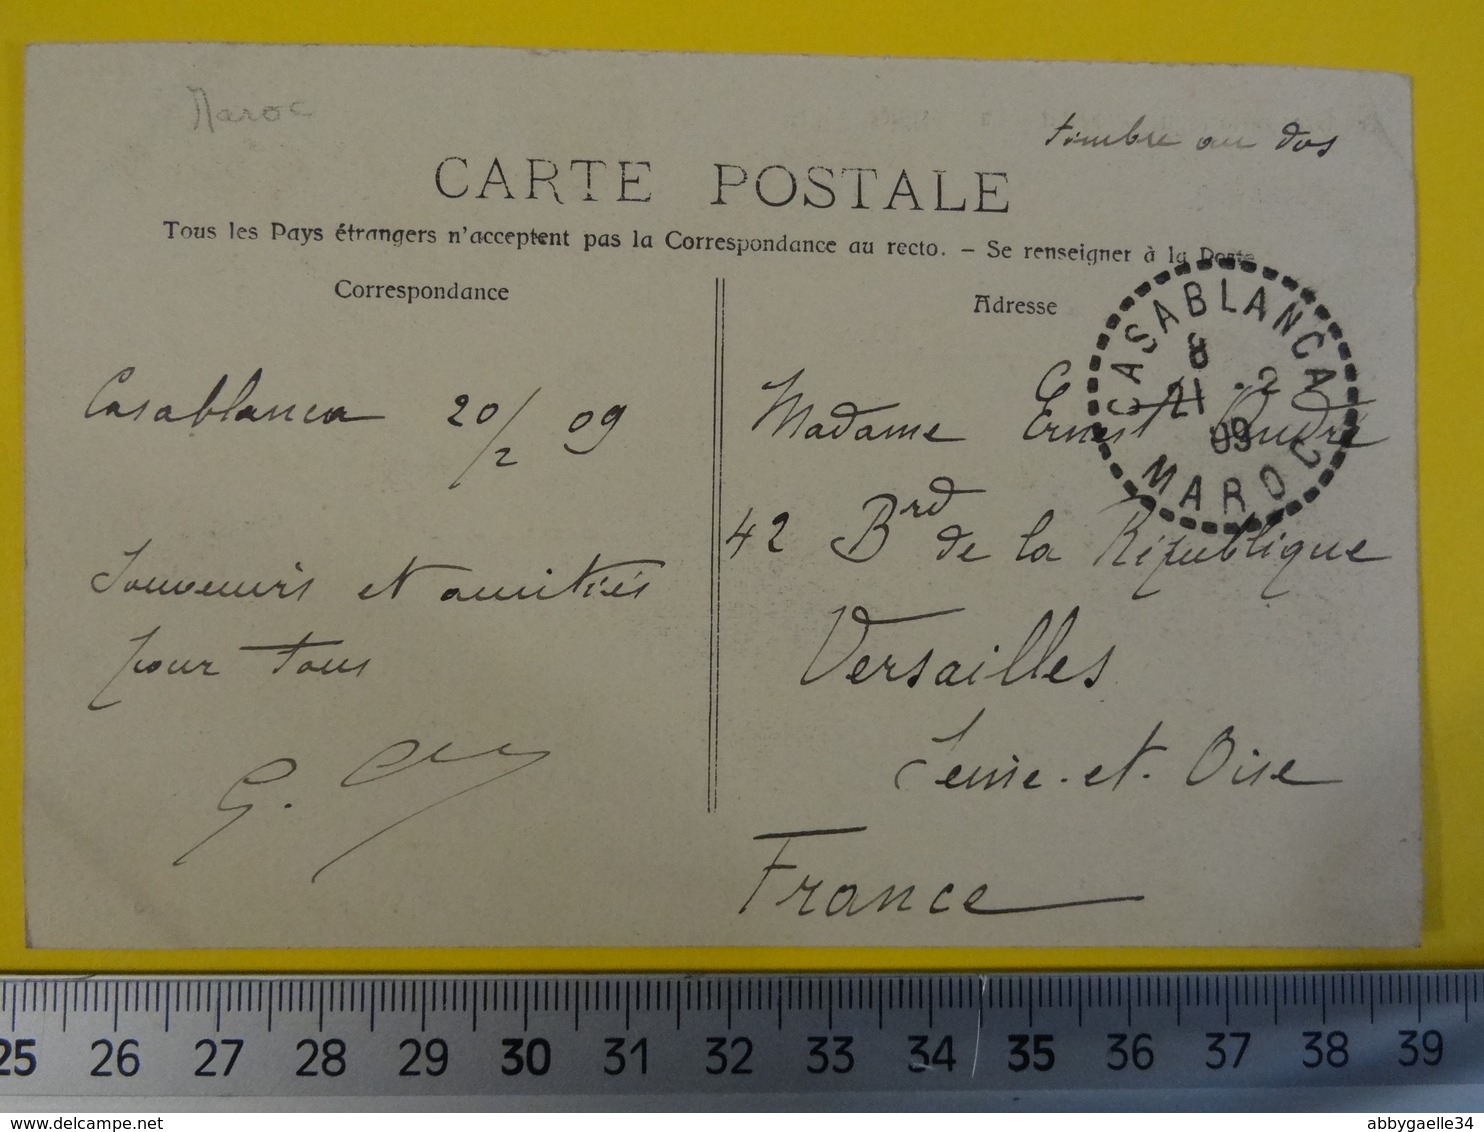 Maroc
timbre au dos
CARTE POSTALE
Tous les Pays étrangers n'acceptent pas la Correspondance au recto. – Se renseigner à la Poste
Correspondance
Adresse
CASABLANCA
21 -2
09
MAROC
Casablanca 20/2 09
Souvenirs et amitiés
pour tous
G.
Madame Ernest André
42 Brd de la République
Versailles
Seine-et-Oise
France
25 26 27 28 29 30 31 32 33 34 35 36 37 38 39
delcampe.net
abbygaelle34